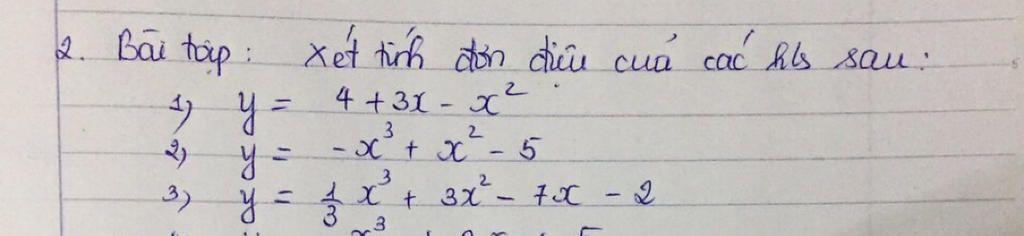 2. Bài tập: Xét tính đơn điệu của các hs sau:
1) y = 4 + 3x - x²
2) y = -x³ + x² - 5
3) y = 1/3 x³ + 3x² - 7x - 2